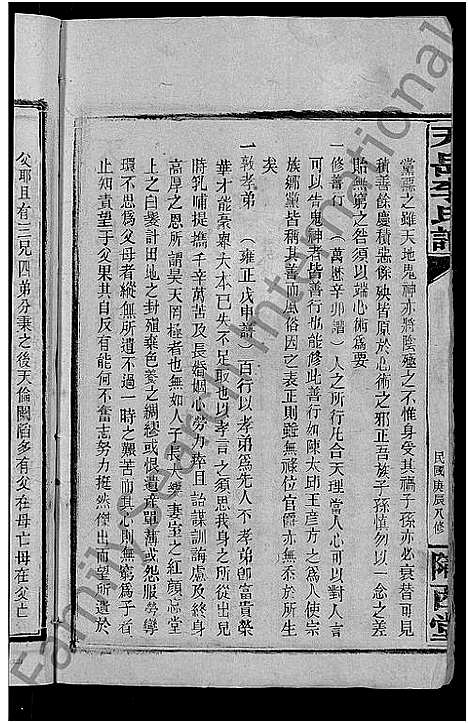 天岳李氏譜
民國庚辰八修
隴西堂
黨惡之雖天地鬼神亦將陰殛之不惟身受其禍子孫亦必衰替可見
積善餘慶積惡餘殃皆原於心術之邪正吾族子孫慎勿以一念之差
貽無窮之咎須以端心術爲要
一修善行 (萬歷辛卯譜) 人之所行凡合天理當人心可以對人言
可以告鬼神者皆善行也能修此善行如陳太邱王彥方之爲人使宗
族鄉黨皆稱其善而風俗因之表正則雖無祿位官爵亦無忝於所生
矣
一敦孝弟 (雍正戊申譜) 百行以孝弟爲先人不孝弟卽富貴榮
華才能豪 大本已失不足取也以孝言之須思我身之所從出兒
時乳哺提攜千辛萬苦及長婚姻心勞力瘁且詒謀訓誨慮及終身
高厚之恩所謂昊天罔極者也無如人子長大孌妻室之紅顏忘堂
上之白髮計田地之封殖棄色養之綢繆或恨遺產單薄或怨服勞
環不思爲父母者縱無所遺不過一時之艱苦而其心則無窮爲子者
止知責望于父果其自反有能何不奮志努力挺然傑出而望所遺於
父耶且有三兄四弟分爨之後天倫闊 多有父在母亡母在父亡
Family Search International